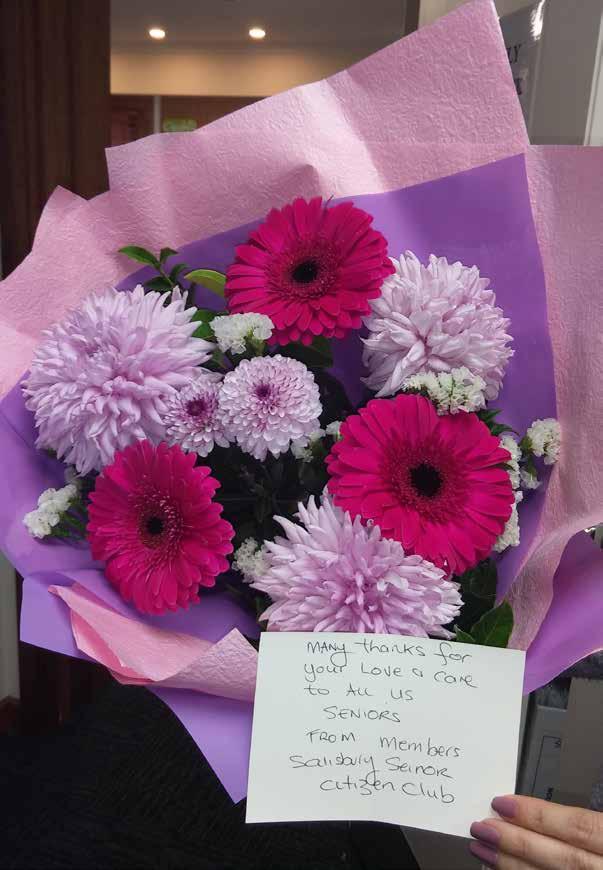 MANY thanks for
your Love & care
to ALL US
SENIORS
FROM Members
Salisbury Seinor
citizen Club